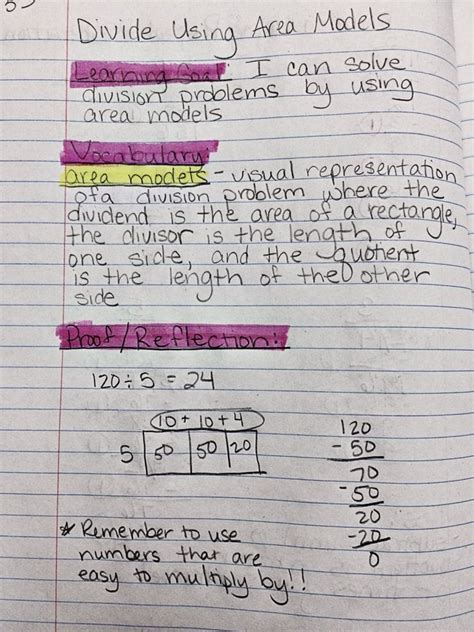 Divide Using Area Models
Learning Goal: I can solve
division problems by using
area models
Vocabulary:
area models - visual representation
of a division problem where the
dividend is the area of a rectangle,
the divisor is the length of
one side, and the quotient
is the length of the other
side
Proof/Reflection:
120 ÷ 5 = 24
10 + 10 + 4
5 50 50 20
120
- 50
70
- 50
20
- 20
0
* Remember to use
numbers that are
easy to multiply by!!